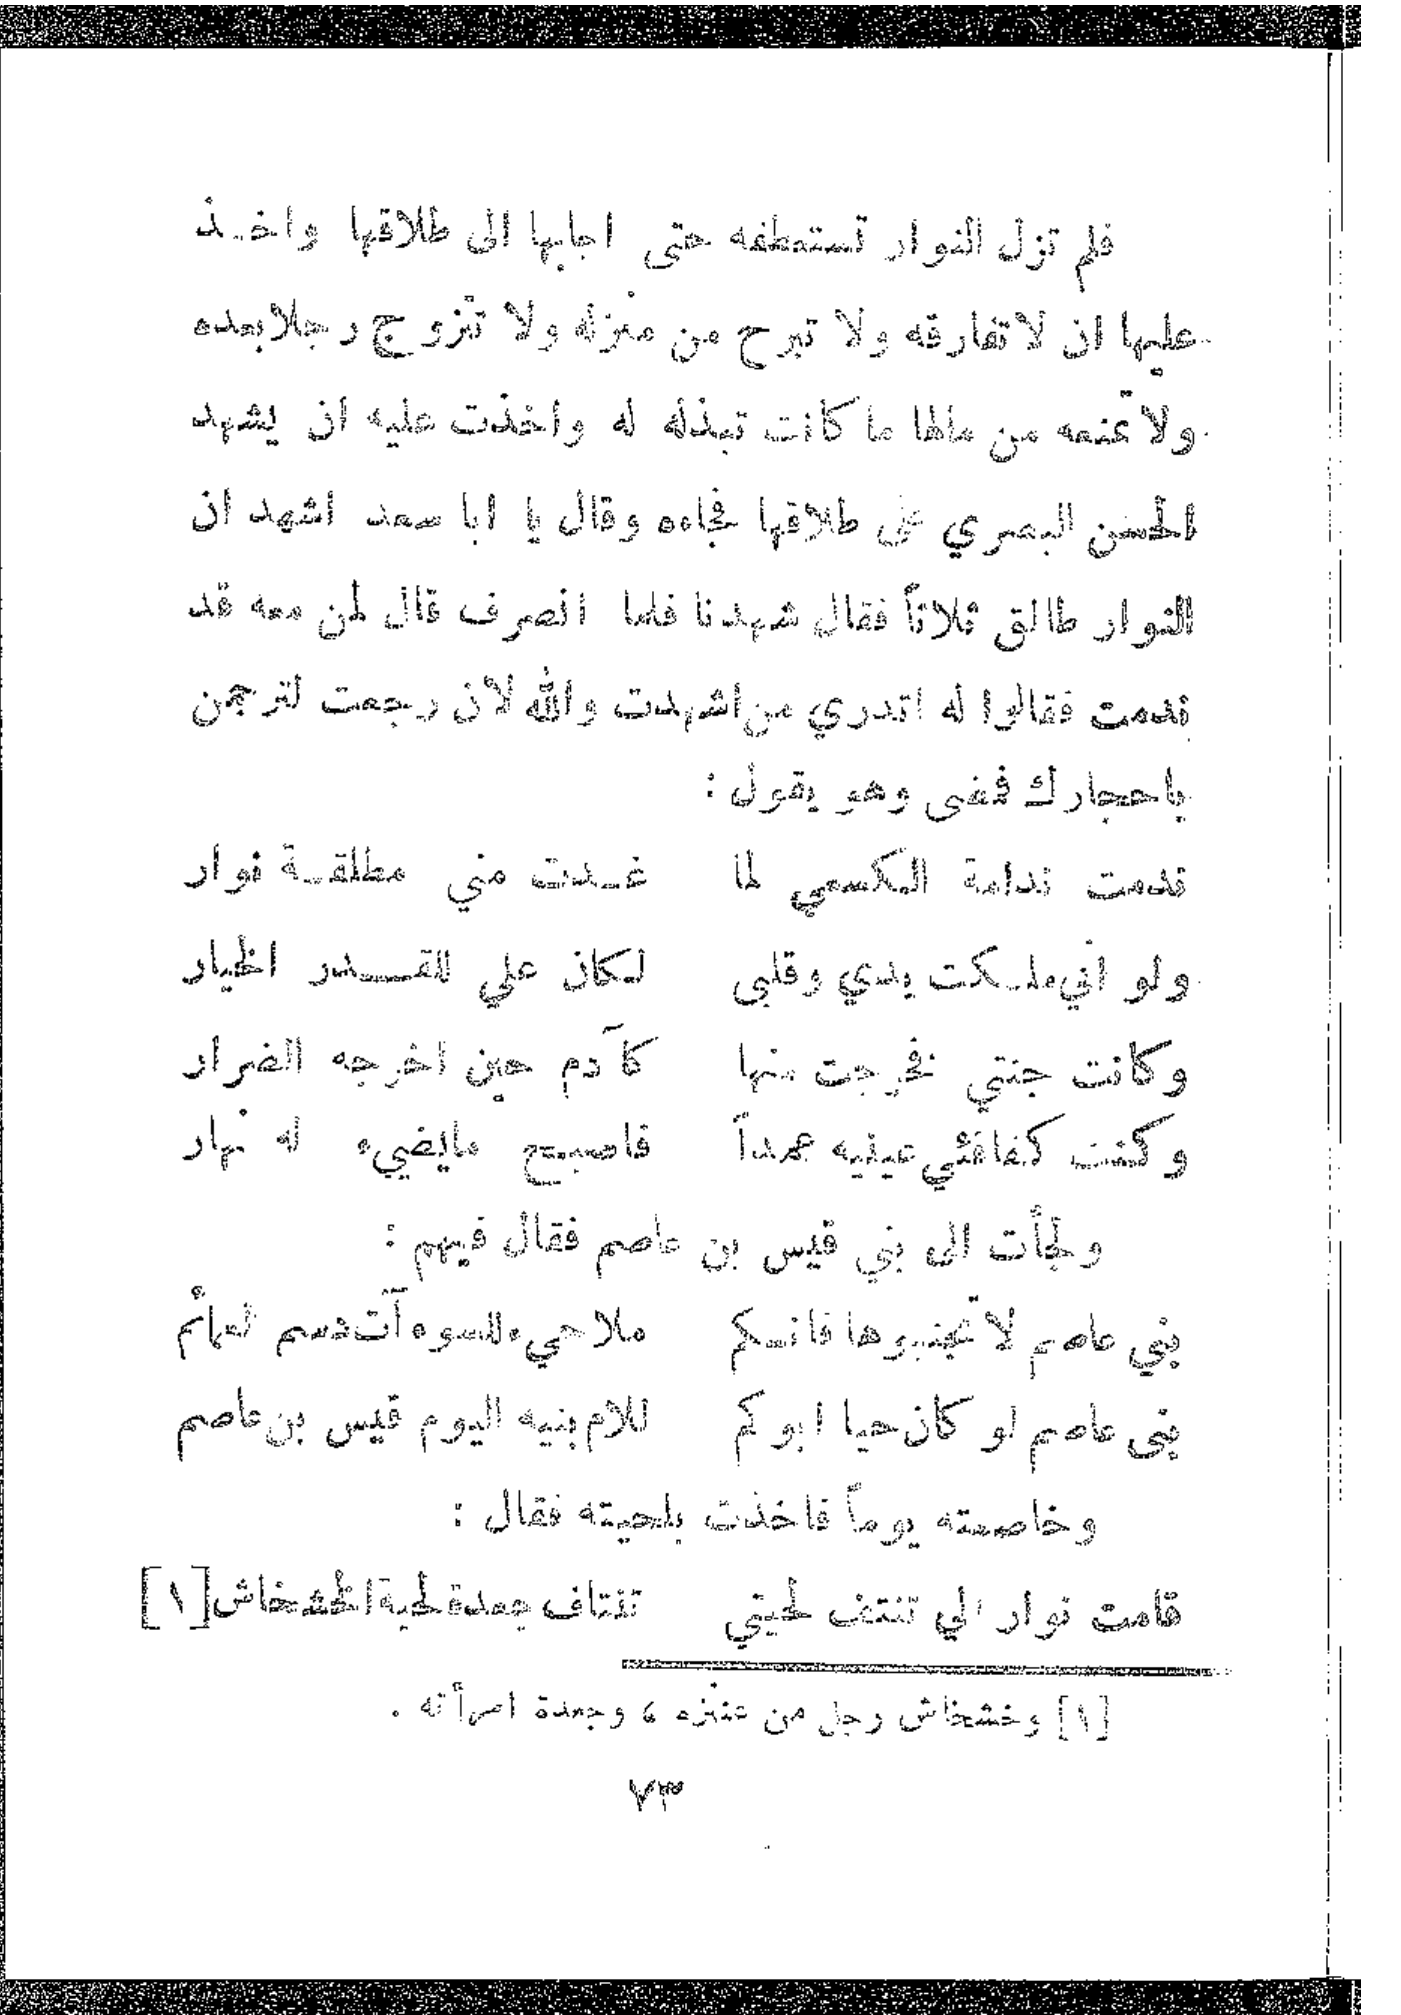 فلم تزل النوار تستعطفه حتى اجابها الى طلاقها واخذ
عليها ان لا تفارقه ولا تبرح من منزله ولا تتزوج رجلا بعده
ولا تمنعه من مالها ما كانت تبذله له واخذت عليه ان يشهد
الحسن البصري على طلاقها فجاءه وقال يا ابا سعد اشهد ان
النوار طالق ثلاثاً فقال شهدنا فلما انصرف قال لمن معه قد
ندمت فقالوا له اتدري من اشهدت والله لان رجعت لترجمن
باحجارك فمضى وهو يقول :
ندمت ندامة الكسعي لما غدت مني مطلقة نوار
ولو اني ملكت يدي وقلبى لكان علي للقدر الخيار
وكانت جنتي فخرجت منها كآدم حين اخرجه الضرار
وكنت كفاقئي عينيه عمداً فاصبح مايضيء له نهار
ولجأت الى بني قيس بن عاصم فقال فيهم :
بني عاصم لا تجنبوها فانكم ملاحيء للسوء آت دسم العمائم
بنى عاصم لو كان حيا ابوكم للام بنيه اليوم قيس بن عاصم
وخاصمته يوماً فاخذت بلحيته فقال :
قامت نوار الي تنتف لحيتي تنتاف جعدة لحية الخشخاش [١]
[١] وخشخاش رجل من عنزه ، وجعدة امرأته .
٧٣